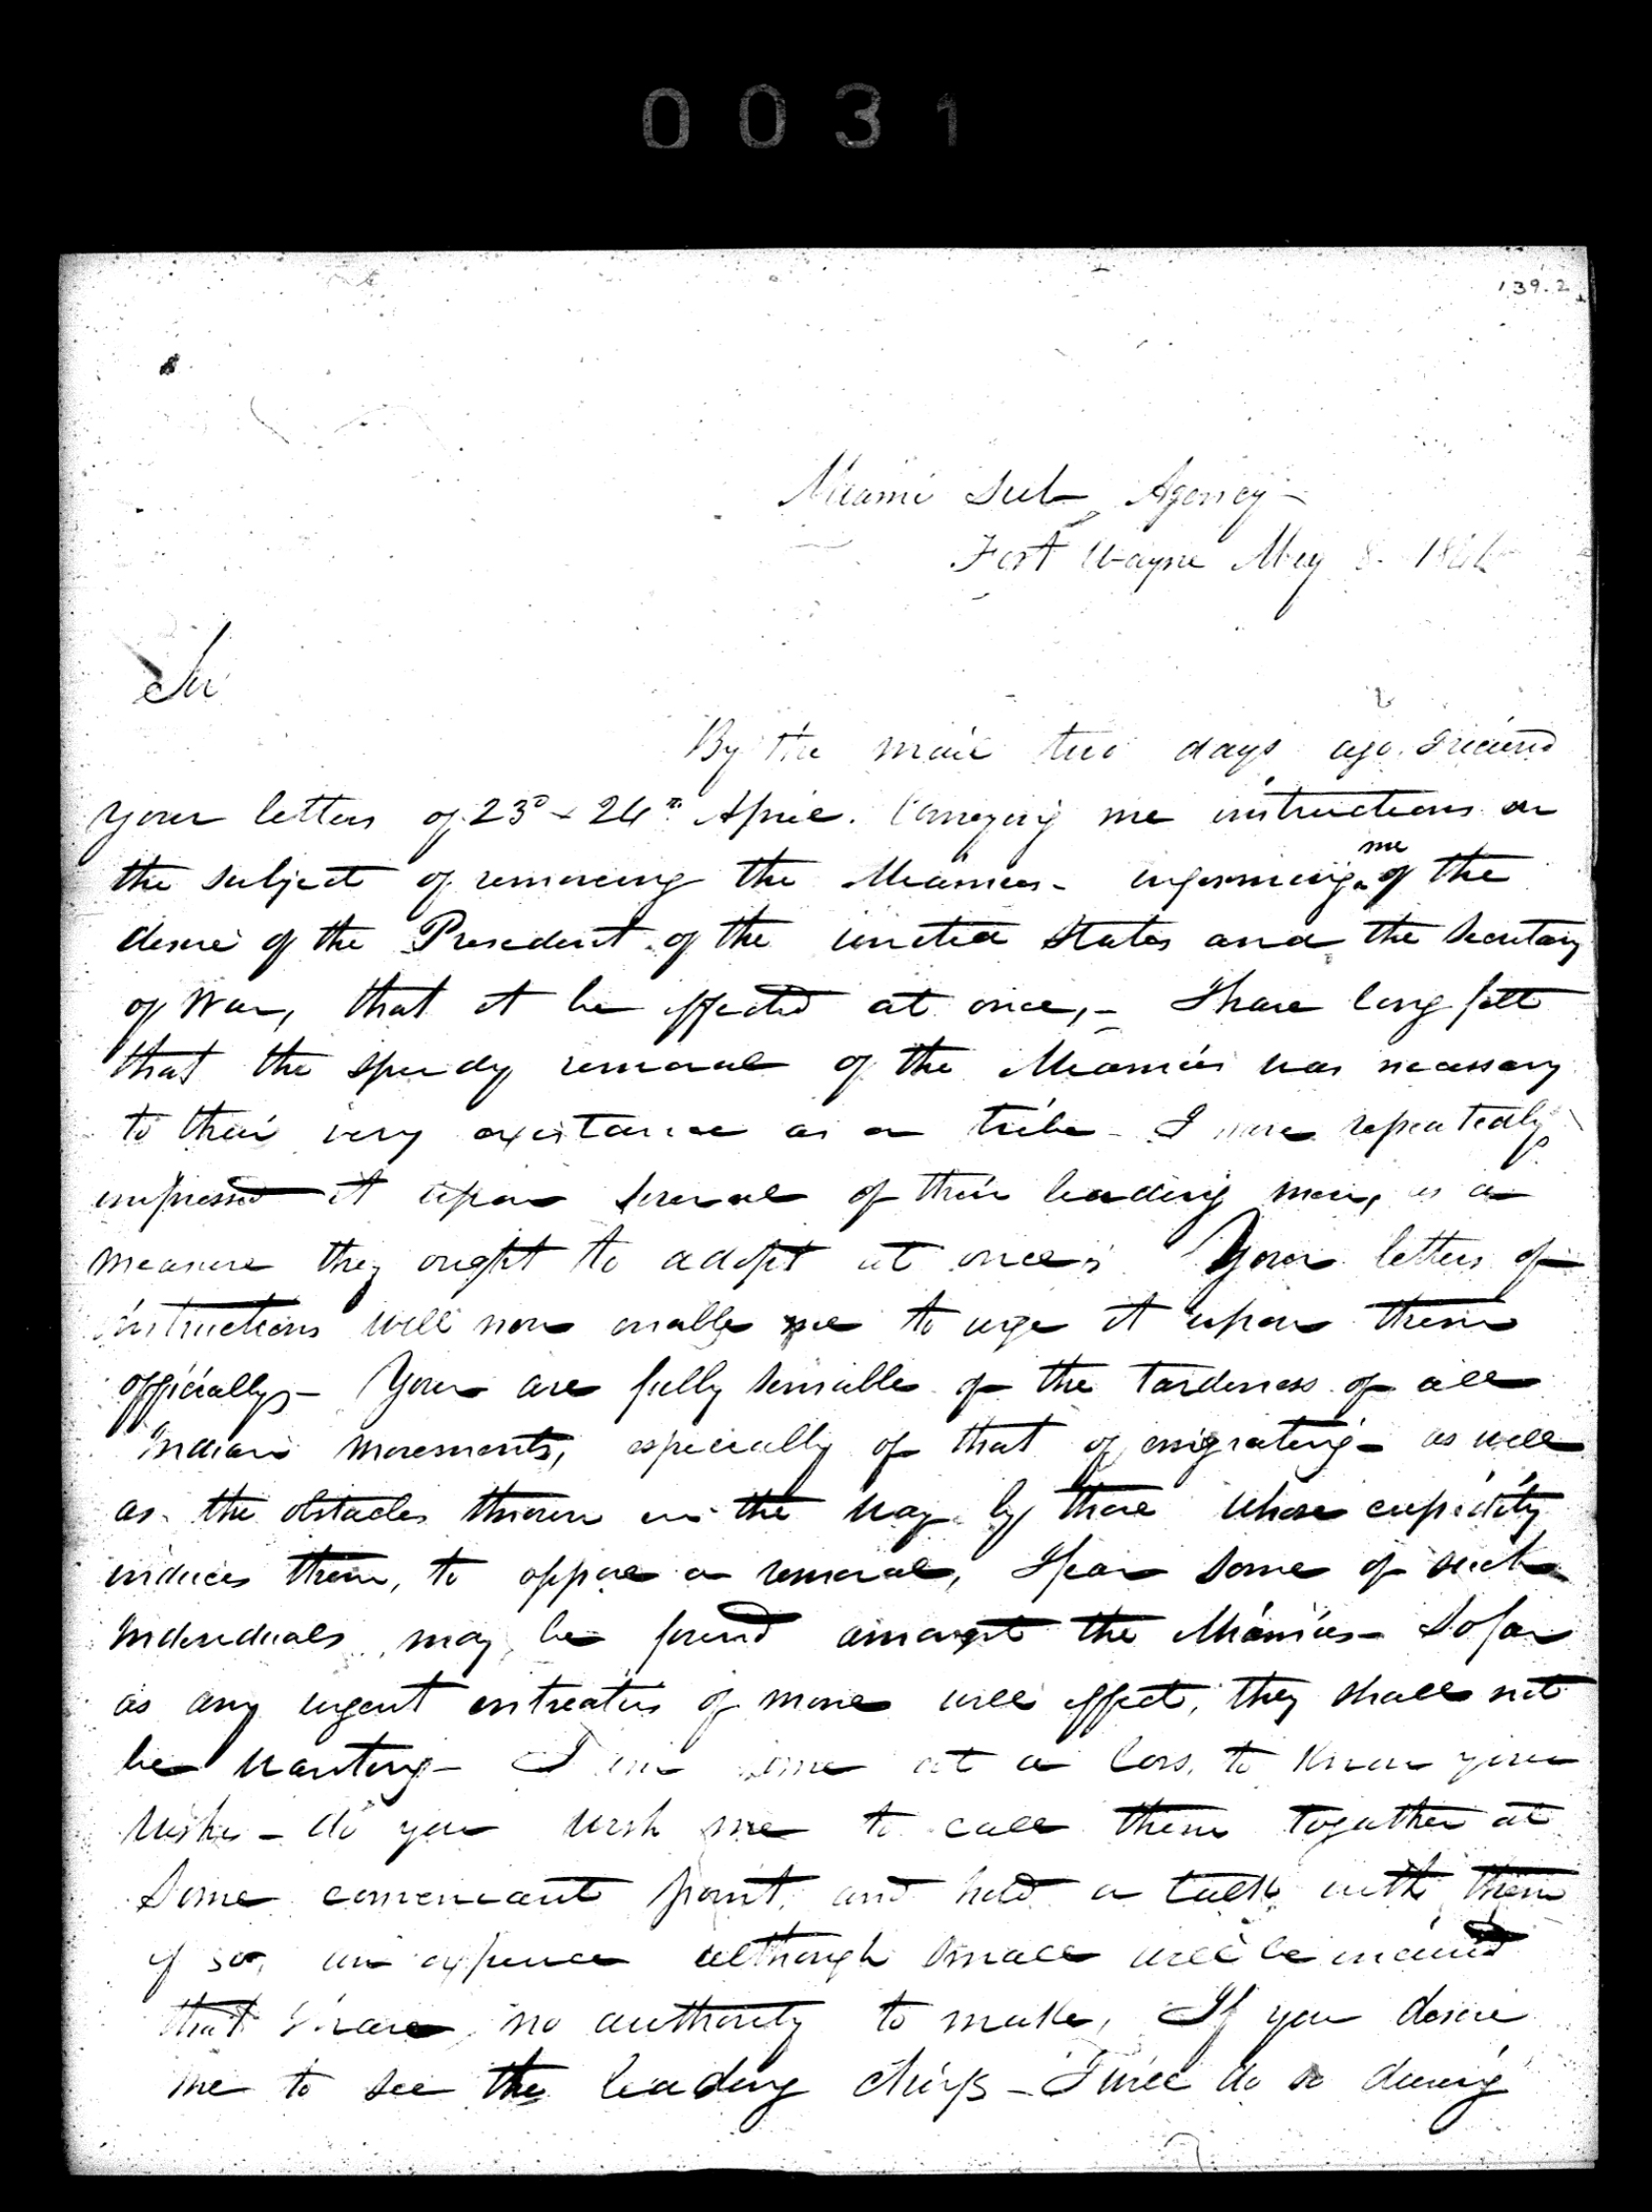 0031
139.2
Miami Sub Agency -
Fort Wayne May 8. 184
Sir
By the mail two days ago. I received
your letters of 23d & 24th April. Conveying me instructions on
the subject of removing the Miamies - informing me of the
desire of the President of the united States and the Secretary
of War, that it be effected at once, - I have long felt
that the speedy removal of the Miamies was necessary
to their very existance as a tribe - I have repeatedly
impressed it upon several of their leading men, as a
measure they ought to adopt at once; Your letters of
instructions will now enable me to urge it upon them
officially - You are fully sensible of the tardeness of all
Indian movements, especially of that of emigrating - as well
as the obstacles thrown in the way by those whose cupidity
induces them, to oppose a removal, I fear some of such
Individuals may be found amongst the Miamies - So far
as any urgent entreaties of mine will effect, they shall not
be wanting - I am some at a loss, to know your
wishes - do you wish me to call them together at
Some conveneant point, and hold a talk with them
if so, an expence although small will be incured
that I have no authority to make, If you desire
me to see the leading chiefs - I will do so during